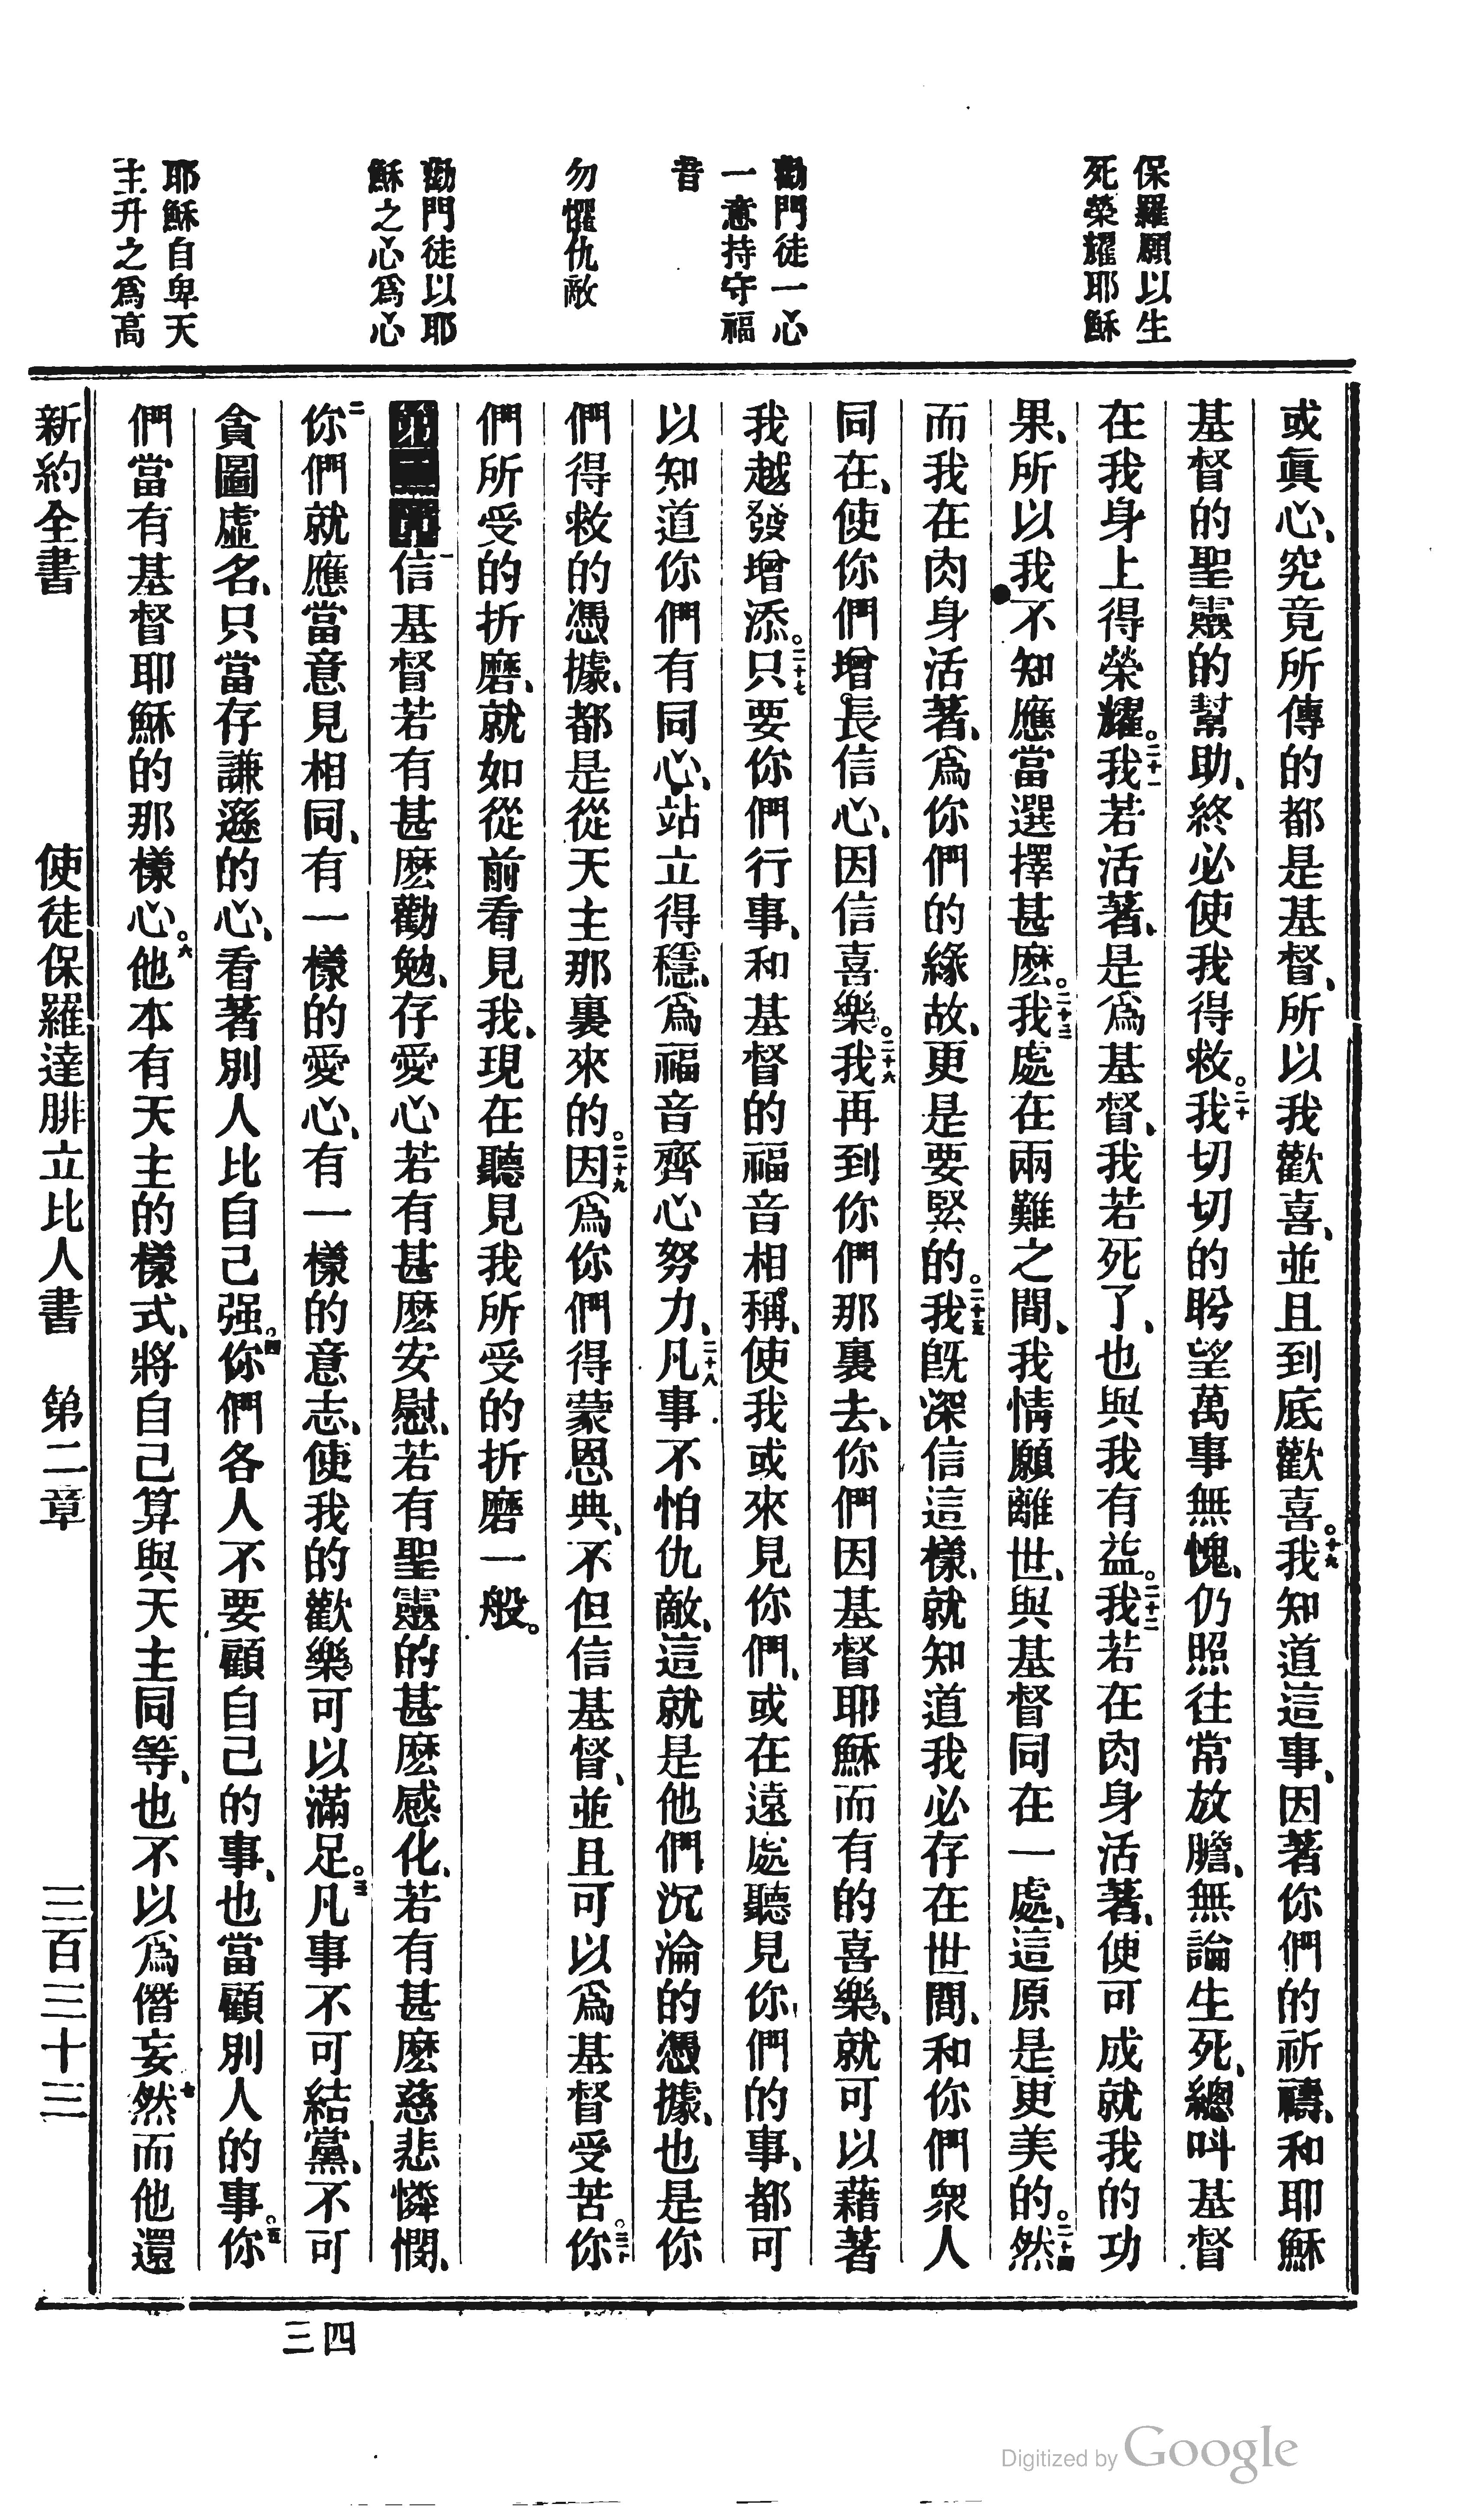 保羅願以生
死榮耀耶穌
勸門徒一心
一意持守福
音
勿懼仇敵
勸門徒以耶
穌之心爲心
耶穌自卑天
主升之爲高
或眞心、究竟所傳的都是基督、所以我歡喜、並且到底歡喜。十九我知道這事、因著你們的祈禱、和耶穌
基督的聖靈的幫助、終必使我得救。二十我切切的盼望萬事無愧、仍照往常放膽、無論生死、總叫基督
在我身上得榮耀。二十一我若活著、是爲基督、我若死了、也與我有益。二十二我若在肉身活著、便可成就我的功
果、所以我不知應當選擇甚麽。二十三我處在兩難之間、我情願離世、與基督同在一處、這原是更美的。二十四然
而我在肉身活著、爲你們的緣故、更是要緊的。二十五我旣深信這樣、就知道我必存在世間、和你們衆人
同在、使你們增長信心、因信喜樂。二十六我再到你們那裏去、你們因基督耶穌而有的喜樂、就可以藉著
我越發增添。二十七只要你們行事、和基督的福音相稱、使我或來見你們、或在遠處聽見你們的事、都可
以知道你們有同心、站立得穩、爲福音齊心努力、二十八凡事不怕仇敵、這就是他們沉淪的憑據、也是你
們得救的憑據、都是從天主那裏來的。二十九因爲你們得蒙恩典、不但信基督、並且可以爲基督受苦。三十你
們所受的折磨、就如從前看見我、現在聽見我所受的折磨一般。
第二章一信基督若有甚麽勸勉、存愛心若有甚麽安慰、若有聖靈的甚麽感化、若有甚麽慈悲憐憫、
二你們就應當意見相同、有一樣的愛心、有一樣的意志、使我的歡樂可以滿足。三凡事不可結黨、不可
貪圖虛名、只當存謙遜的心、看著別人比自己强。四你們各人不要顧自己的事、也當顧別人的事。五你
們當有基督耶穌的那樣心。六他本有天主的樣式、將自己算與天主同等、也不以爲僭妄七然而他還
新約全書 使徒保羅達腓立比人書 第二章 三百三十三
四三
Digitized by Google